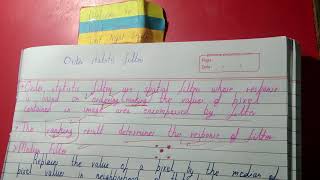 Order statistic filters
Page:
Date:
• Order statistic filters are spatial filters whose response
is based on ordering (ranking) the value of pixel
contained in image area encompassed by filter
• The ranking result determines the response of filter
• Median filter
Replaces the value of a pixel by the median of
pixel values in neighborhood of